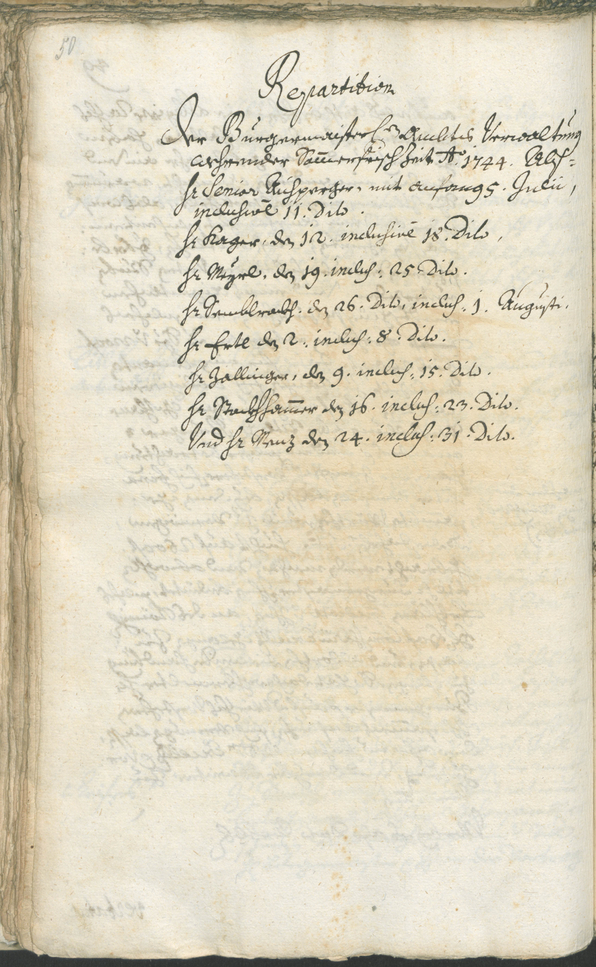 50
Repartition
Der Burgermaister Ambts Verwaltung
wehrender Sommerfrisch Zeit Ao 1744. Alß:
hr Senior mit anfang 5. Julii,
inclusivè 11. Dito.
hr Kager. den 12. inclusivè 18. Dito,
hr Mayrl. den 19. inclus: 25. Dito.
hr den 26. Dito, inclus: 1. Augusti.
hr Ertl den 2. inclus: 8. Dito.
hr Zallinger, den 9. inclus: 15. Dito.
hr Stockhhammer den 16. inclus: 23. Dito.
Vnd hr Menz den 24. inclus: 31. Dito.